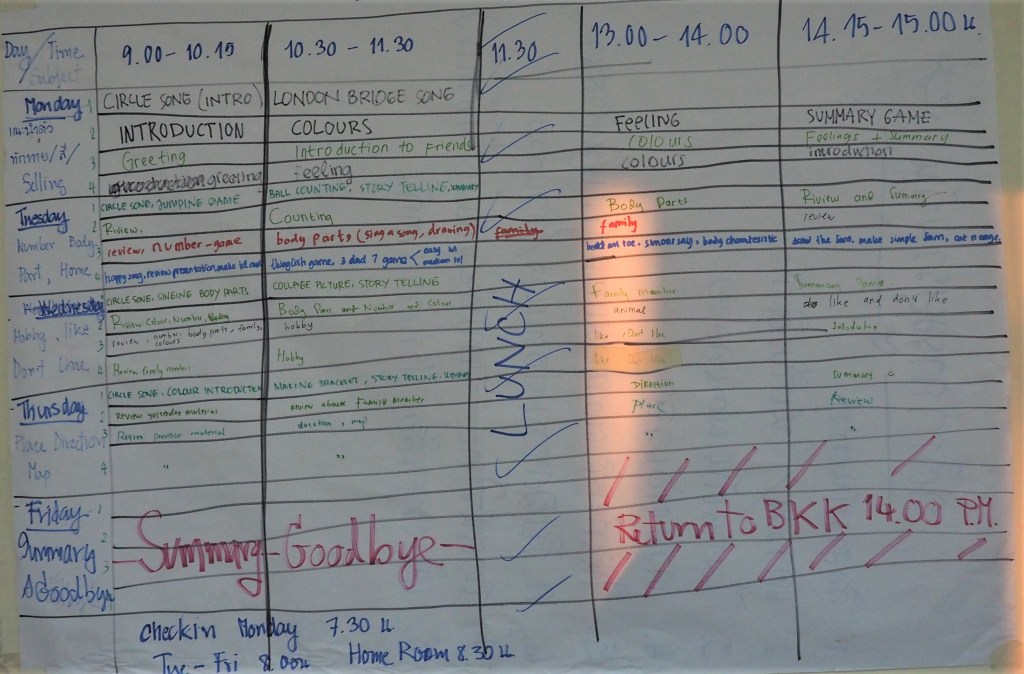 Day / Time 9.00 - 10.15 10.30 - 11.30 11.30 13.00 - 14.00 14.15 - 15.00 น.
Subject
Monday 1 CIRCLE SONG (INTRO) LONDON BRIDGE SONG
แนะนำตัว 2 INTRODUCTION COLOURS FEELING SUMMARY GAME
ทักทาย/สี/ 3 Greeting Introduction to Friends Colours Feelings + Summary
Selling 4 greeting Feeling colours introduction
Tuesday 1 CIRCLE SONG, JUMPING GAME BALL COUNTING, STORY TELLING, SUMMARY Body Parts Riview and Summary
Number Body 2 Riview. Counting family review
Part, Home 3 review, number-game body parts, (sing a song, drawing) family
4 happy song, review, presentation, game 3 dad 7 game easy lvl
medium lvl
Wednesday 1 CIRCLE SONG, SINGING BODY PARTS COLLAPE PICTURE, STORY TELLING Family member Summary Game
Hobby, like 2 Riview Colour, Number, Body Body Pars and Number and Colour animal like and don't like
3 review - number, body parts, family, hobby
colours
Don't Lime 4 Review family number Hobby
Thursday 1 CIRCLE SONG, COLOUR INTRODUCTION MAKING BRACELET, STORY TELLING, SUMMARY Direction Summary
2 Review yesterday material Review about Family Member Place Review
Place Direction 3 Review material direction, map " "
Map 4 " "
Friday 1
Summary 2 Summary - Goodbye - Return to BKK 14.00 P.M.
3
& Goodbye
LUNCH
Checkin Monday 7.30 น
Tue - Fri 8.00น Home Room 8.30 น